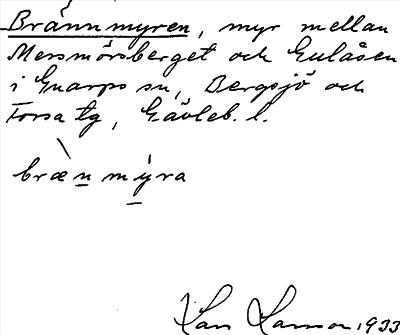 Brännmyren, myr mellan
Mersmörsberget och Gulåsen
i Gnarps sn, Bergsjö och
Forsa tg, Gävleb. l.
bræn mýra
1933